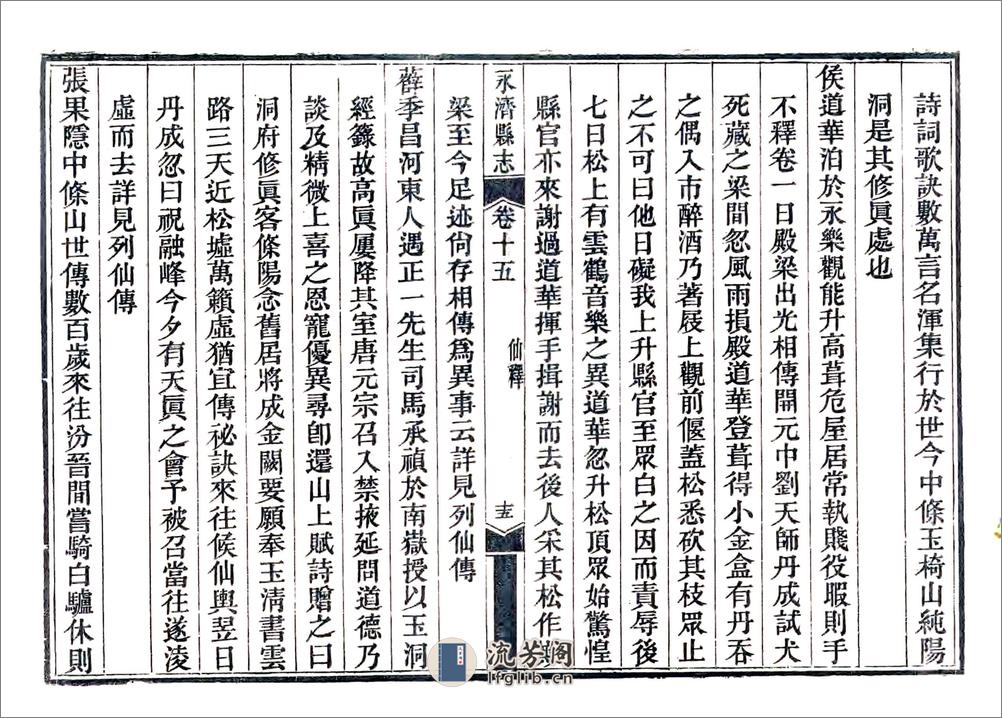 詩詞歌訣數萬言名渾集行於世今中條玉椅山純陽
洞是其修眞處也
侯道華泊於永樂觀能升高葺危屋居常執賤役暇則手
不釋卷一日殿梁出光相傳開元中劉天師丹成試犬
死藏之梁間忽風雨損殿道華登葺得小金盒有丹吞
之偶入市醉酒乃著屐上觀前偃蓋松悉砍其枝眾止
之不可曰他日礙我上升縣官至眾白之因而責辱後
七日松上有雲鶴音樂之異道華忽升松頂眾始驚惶
縣官亦來謝過道華揮手揖謝而去後人采其松作
永濟縣志
卷十五
仙釋
梁至今足迹尙存相傳爲異事云詳見列仙傳
薛季昌河東人遇正一先生司馬承禎於南嶽授以玉洞
經籙故高眞屢降其室唐元宗召入禁掖延問道德乃
談及精微上喜之恩寵優異尋卽還山上賦詩贈之曰
洞府修眞客條陽念舊居將成金闕要願奉玉淸書雲
路三天近松墟萬籟虛猶宜傳祕訣來往候仙輿翌日
丹成忽曰祝融峰今夕有天眞之會予被召當往遂淩
虛而去詳見列仙傳
張果隱中條山世傳數百歲來往汾晉間嘗騎白驢休則
流芳阁
lfglib.cn